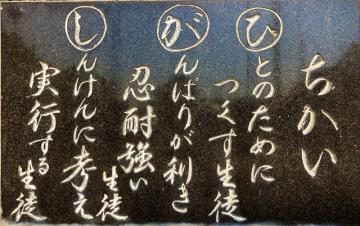 ちかい
ひとのために
つくす生徒
がんばりが利き
忍耐強い
生徒
しんけんに考え
実行する
生徒